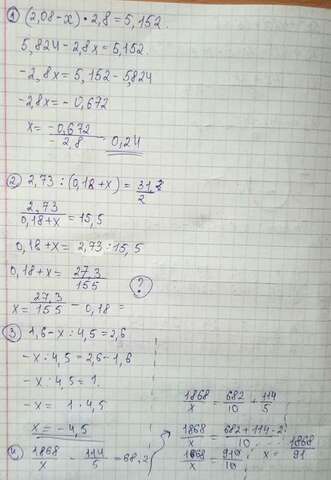 ① (2,08-x)·2,8=5,152.
5,824-2,8x=5,152
-2,8x=5,152-5,824
-2,8x=-0,672
x= -0,672 / -2,8 - 0,24
② 2,73:(0,18+x)= 31,2 / 2
2,73 / 0,18+x =15,5
0,18+x= 2,73:15,5
0,18+x= 27,3 / 155
x= 27,3 / 155 - 0,18 =
?
③ 1,6-x:4,5=2,6
-x:4,5=2,6-1,6
-x:4,5=1.
-x= 1·4,5
x=-4,5
④ 1868 / x - 114 / 5 =68,2
1868 / x = 682 / 10 + 114 / 5
1868 / x = 682+114·2 / 10
1868 / x = 910 / 10 x= 1868 / 91